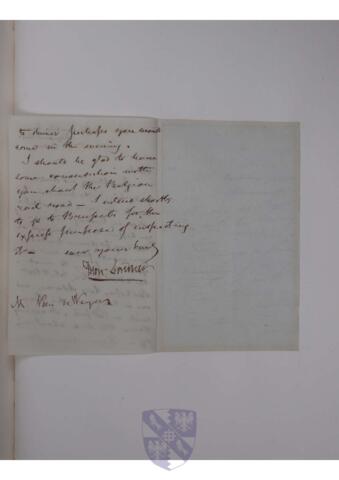 to dinner perhaps you would
come in the evening.
I should be glad to have
some conversation with
you about the Belgian
rail road — I intend shortly
to go to Brussels for the
express purpose of inspecting
it — ever yours truly
M Van de Weyer